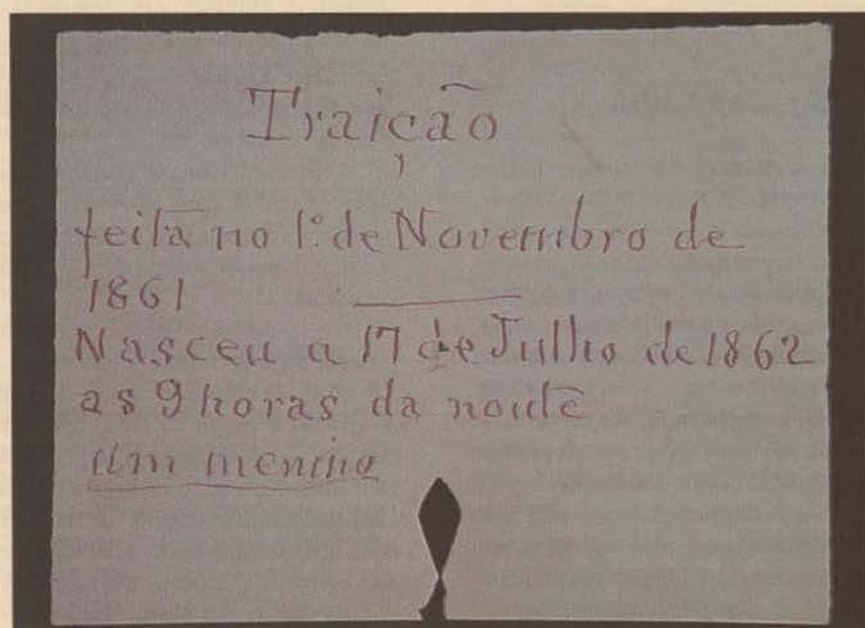 Traição
feita no 1º de Novembro de
1861
Nasceu a 17 de Julho de 1862
as 9 horas da noute
um menino